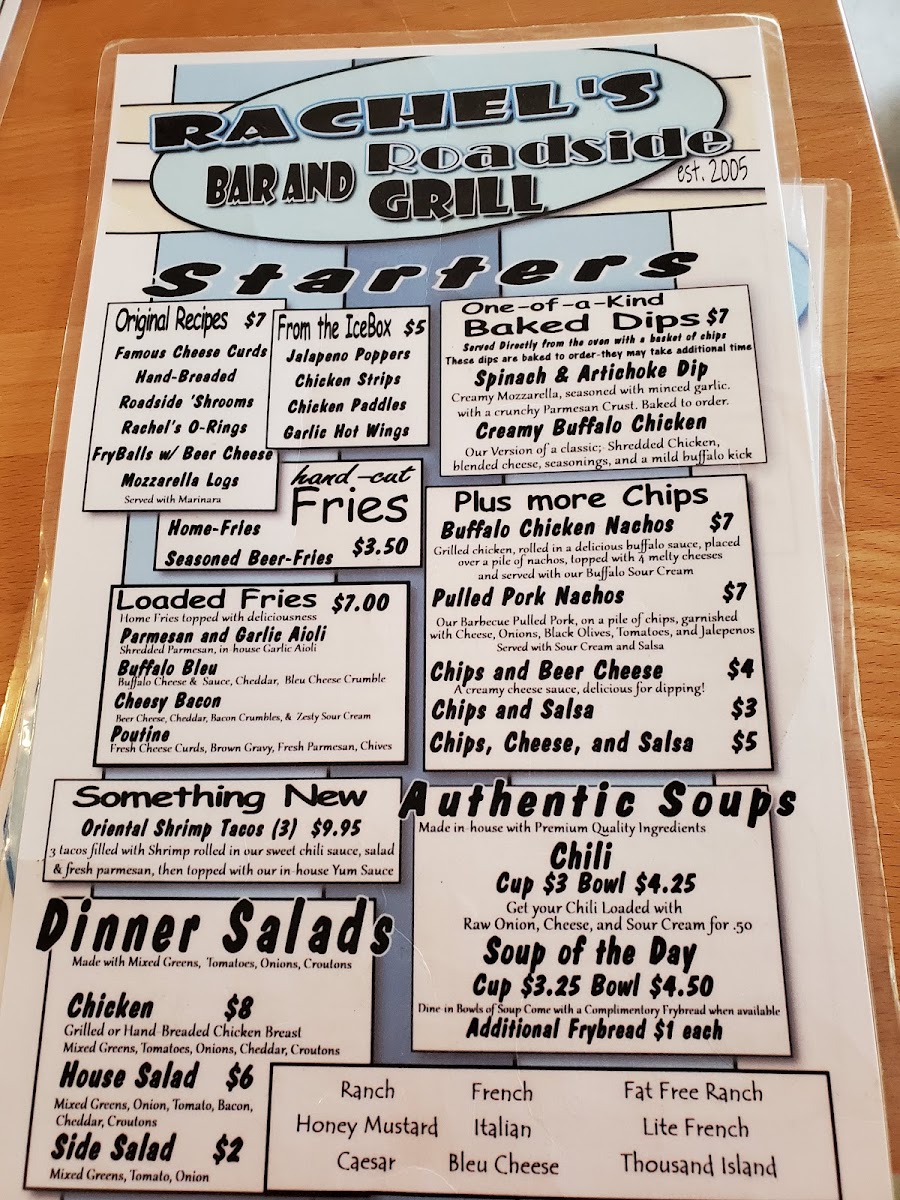 RACHEL'S
BAR AND Roadside
GRILL
est. 2005
Starters
Original Recipes $7
Famous Cheese Curds
Hand-Breaded
Roadside 'Shrooms
Rachel's O-Rings
FryBalls w/ Beer Cheese
Mozzarella Logs
Served with Marinara
From the IceBox $5
Jalapeno Poppers
Chicken Strips
Chicken Paddles
Garlic Hot Wings
One-of-a-Kind
Baked Dips $7
Served Directly from the oven with a basket of chips
These dips are baked to order-they may take additional time
Spinach & Artichoke Dip
Creamy Mozzarella, seasoned with minced garlic.
with a crunchy Parmesan Crust. Baked to order.
Creamy Buffalo Chicken
Our Version of a classic; Shredded Chicken,
blended cheese, seasonings, and a mild buffalo kick
hand-cut
Fries
Home-Fries
Seasoned Beer-Fries $3.50
Plus more Chips
Buffalo Chicken Nachos $7
Grilled chicken, rolled in a delicious buffalo sauce, placed
over a pile of nachos, topped with 4 melty cheeses
and served with our Buffalo Sour Cream
Pulled Pork Nachos $7
Our Barbecue Pulled Pork, on a pile of chips, garnished
with Cheese, Onions, Black Olives, Tomatoes, and Jalepenos
Served with Sour Cream and Salsa
Chips and Beer Cheese $4
A creamy cheese sauce, delicious for dipping!
Chips and Salsa $3
Chips, Cheese, and Salsa $5
Loaded Fries $7.00
Home Fries topped with deliciousness
Parmesan and Garlic Aioli
Shredded Parmesan, in-house Garlic Aioli
Buffalo Bleu
Buffalo Cheese & Sauce, Cheddar, Bleu Cheese Crumble
Cheesy Bacon
Beer Cheese, Cheddar, Bacon Crumbles, & Zesty Sour Cream
Poutine
Fresh Cheese Curds, Brown Gravy, Fresh Parmesan, Chives
Something New
Oriental Shrimp Tacos (3) $9.95
3 tacos filled with Shrimp rolled in our sweet chili sauce, salad
& fresh parmesan, then topped with our in-house Yum Sauce
Authentic Soups
Made in-house with Premium Quality Ingredients
Chili
Cup $3 Bowl $4.25
Get your Chili Loaded with
Raw Onion, Cheese, and Sour Cream for .50
Soup of the Day
Cup $3.25 Bowl $4.50
Dine in Bowls of Soup Come with a Complimentory Frybread when available
Additional Frybread $1 each
Dinner Salads
Made with Mixed Greens, Tomatoes, Onions, Croutons
Chicken $8
Grilled or Hand-Breaded Chicken Breast
Mixed Greens, Tomatoes, Onions, Cheddar, Croutons
House Salad $6
Mixed Greens, Onion, Tomato, Bacon,
Cheddar, Croutons
Side Salad $2
Mixed Greens, Tomato, Onion
Ranch French Fat Free Ranch
Honey Mustard Italian Lite French
Caesar Bleu Cheese Thousand Island